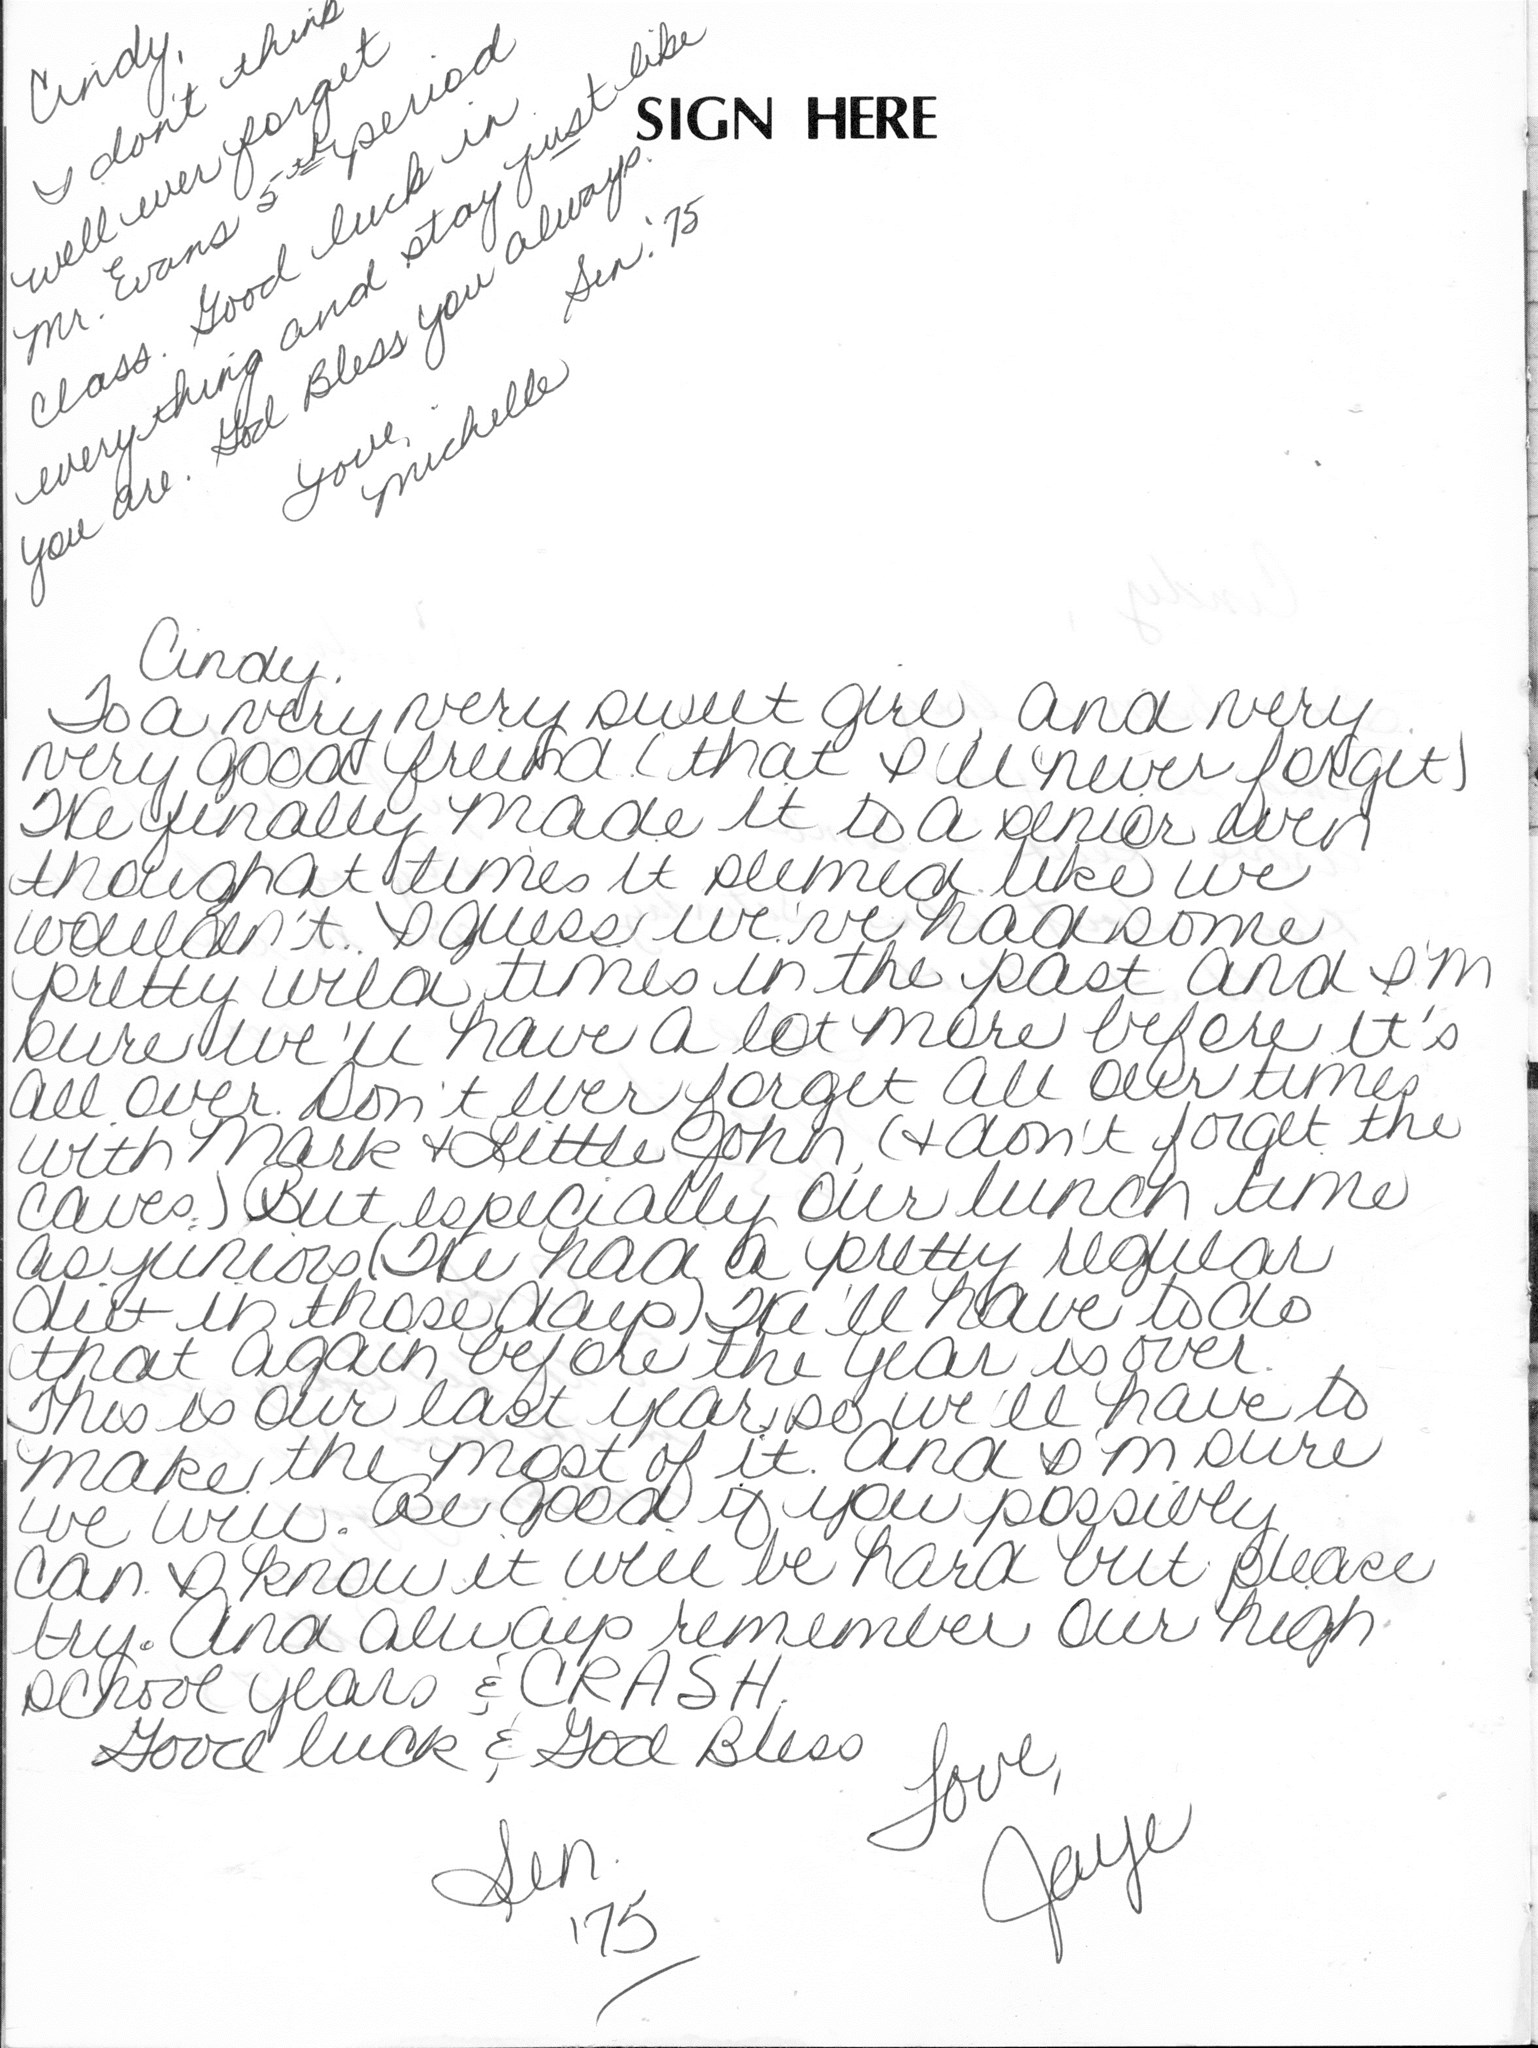 SIGN HERE
Cindy,
I don't think
well ever forget
Mr. Evans 5th period
class. Good luck in
everything and stay just like
you are. God Bless you always.
Love,
Michelle
Sen. '75
Cindy,
To a very very sweet girl and very
very good friend (that I'll never forget)
We finally made it to a senior even
though at times it seemed like we
wouldn't. I guess we've had some
pretty wild times in the past and I'm
sure we'll have a lot more before it's
all over. Don't ever forget all our times
with Mark & Little John (& don't forget the
caves.) But especially our lunch time
as juniors (We had a pretty regular
diet in those days) We'll have to do
that again before the year is over.
This is our last year so we'll have to
make the most of it. And I'm sure
we will. Be good if you possibly
can. I know it will be hard but please
try. And always remember our high
school years & CRASH.
Good luck & God Bless
Love,
Jaye
Sen.
'75